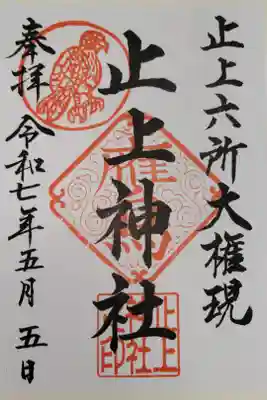 止上六所大権現
止上神社
奉拝 令和七年五月五日